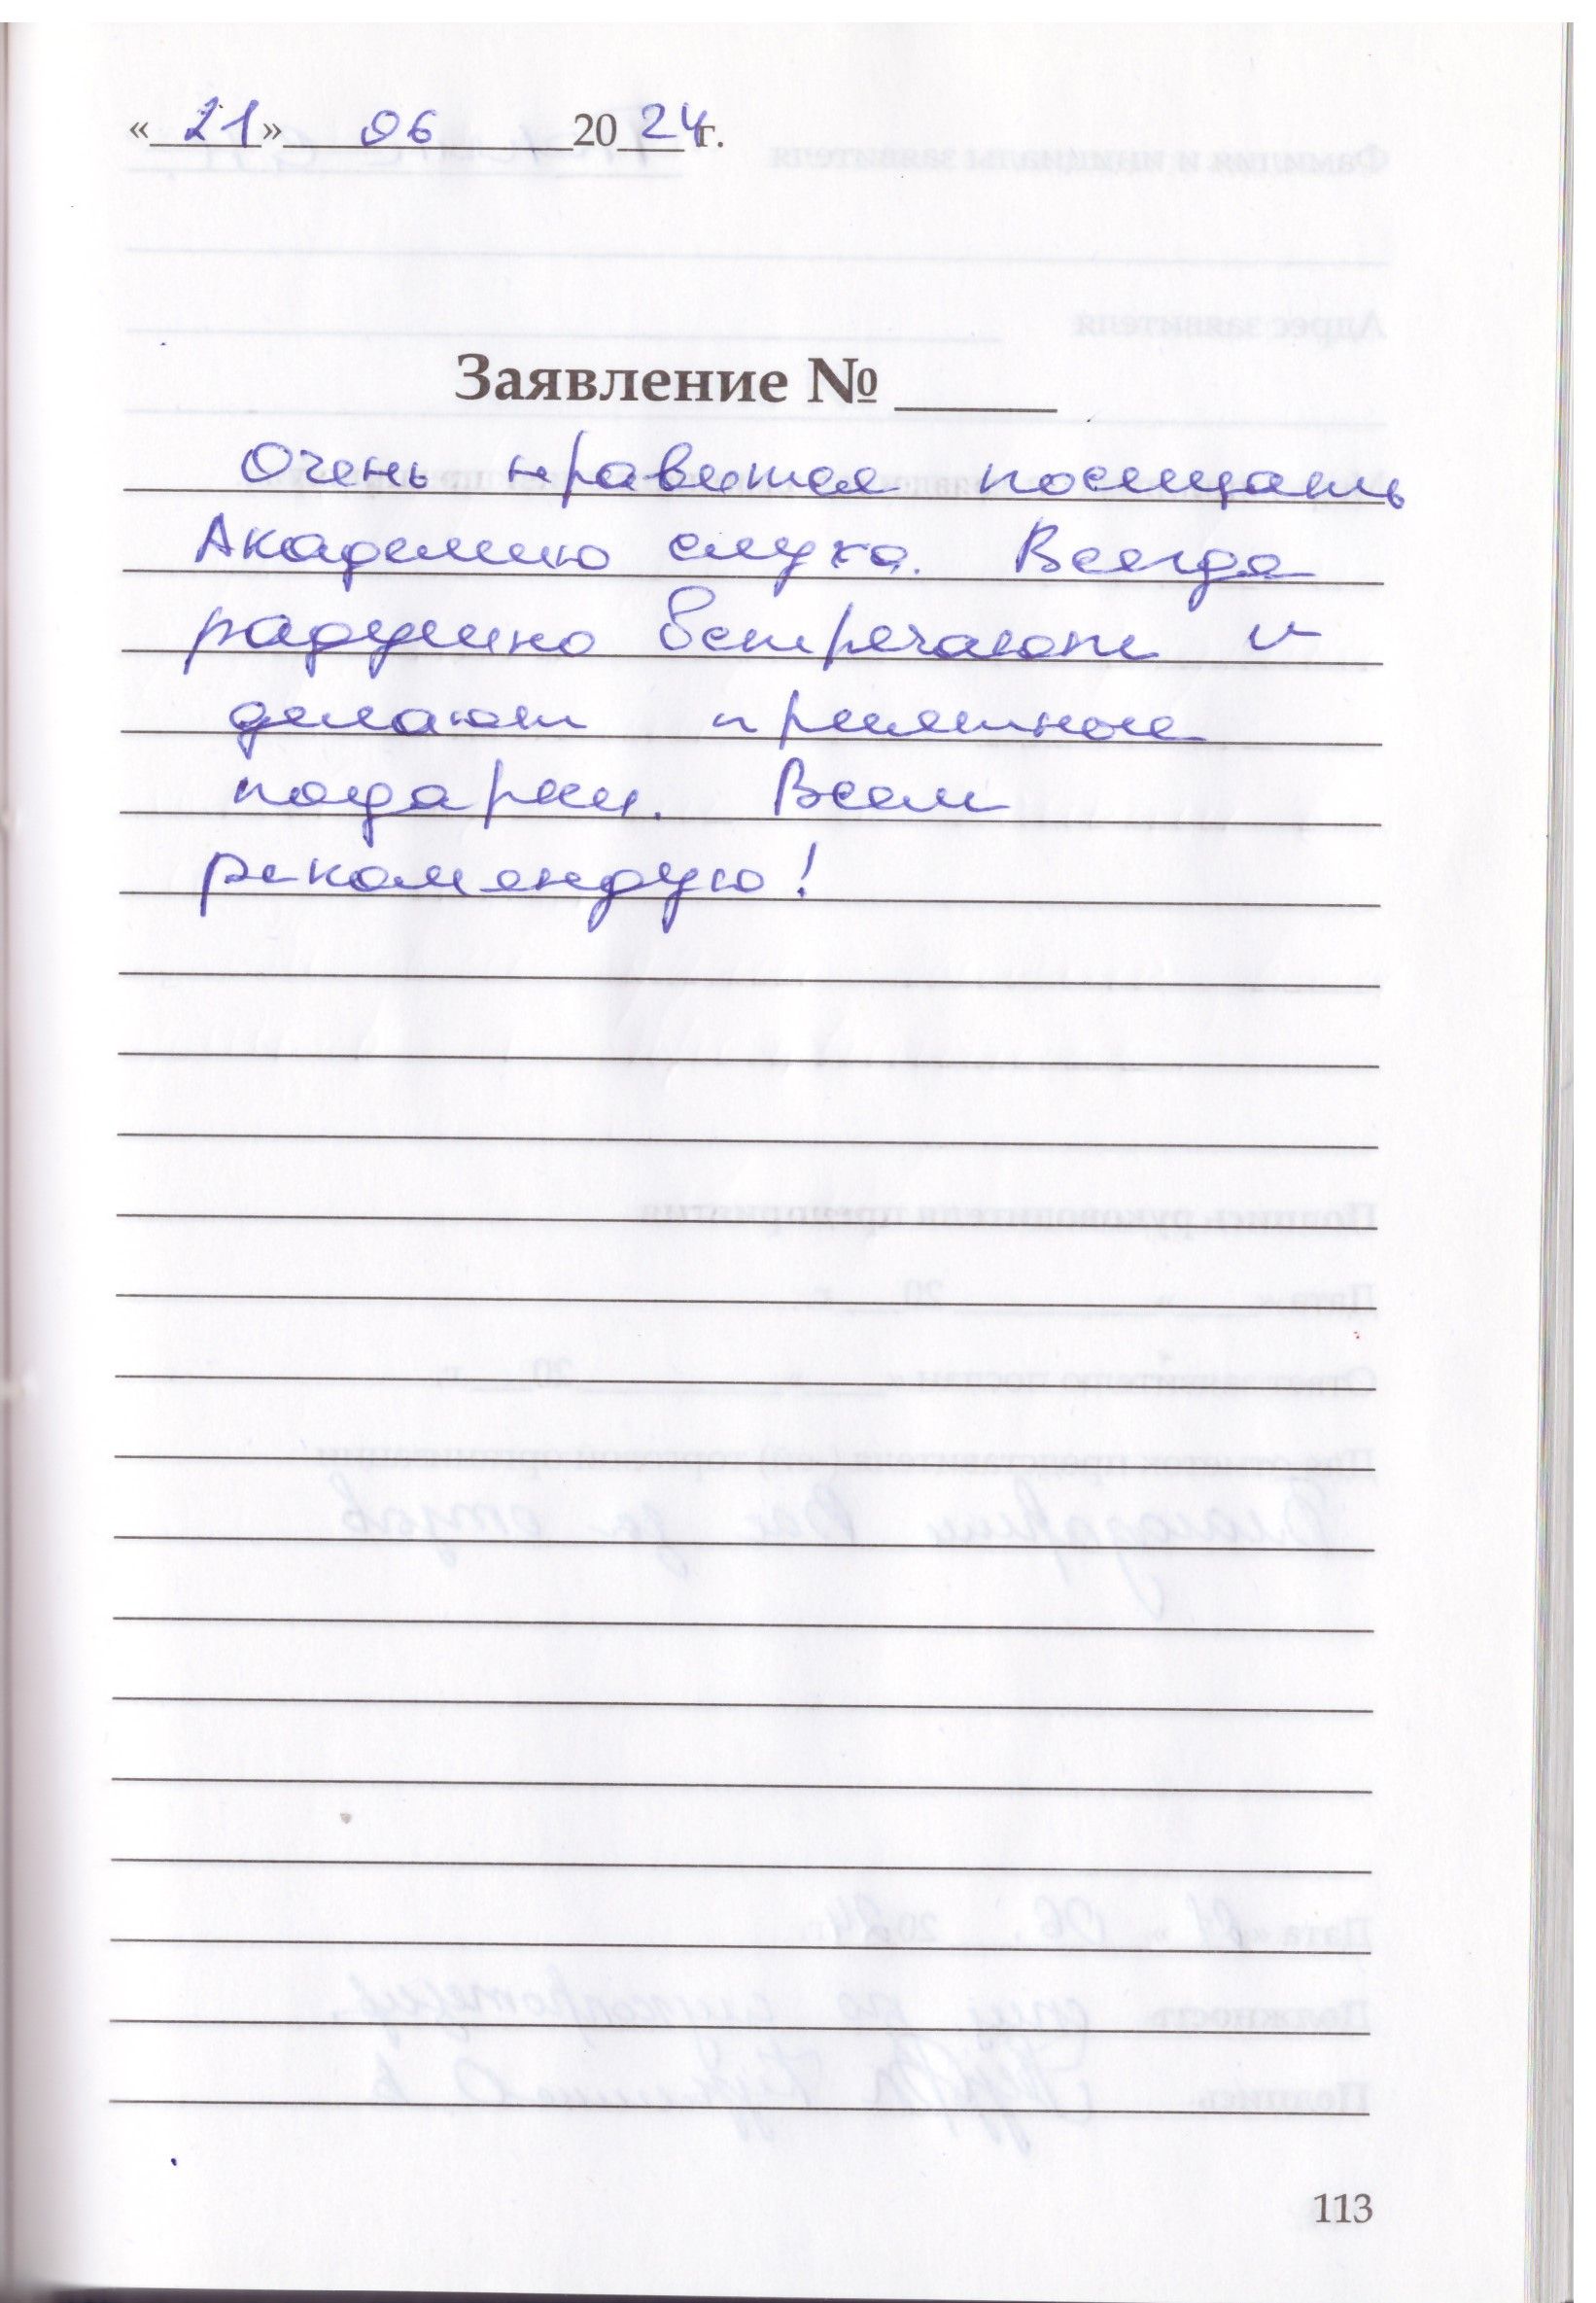 «21» 06 2024 г.
Заявление № ____
Очень нравится посещать
Академию слуха. Всегда
радушно встречают и
делают приятные
подарки. Всем
рекомендую!
113